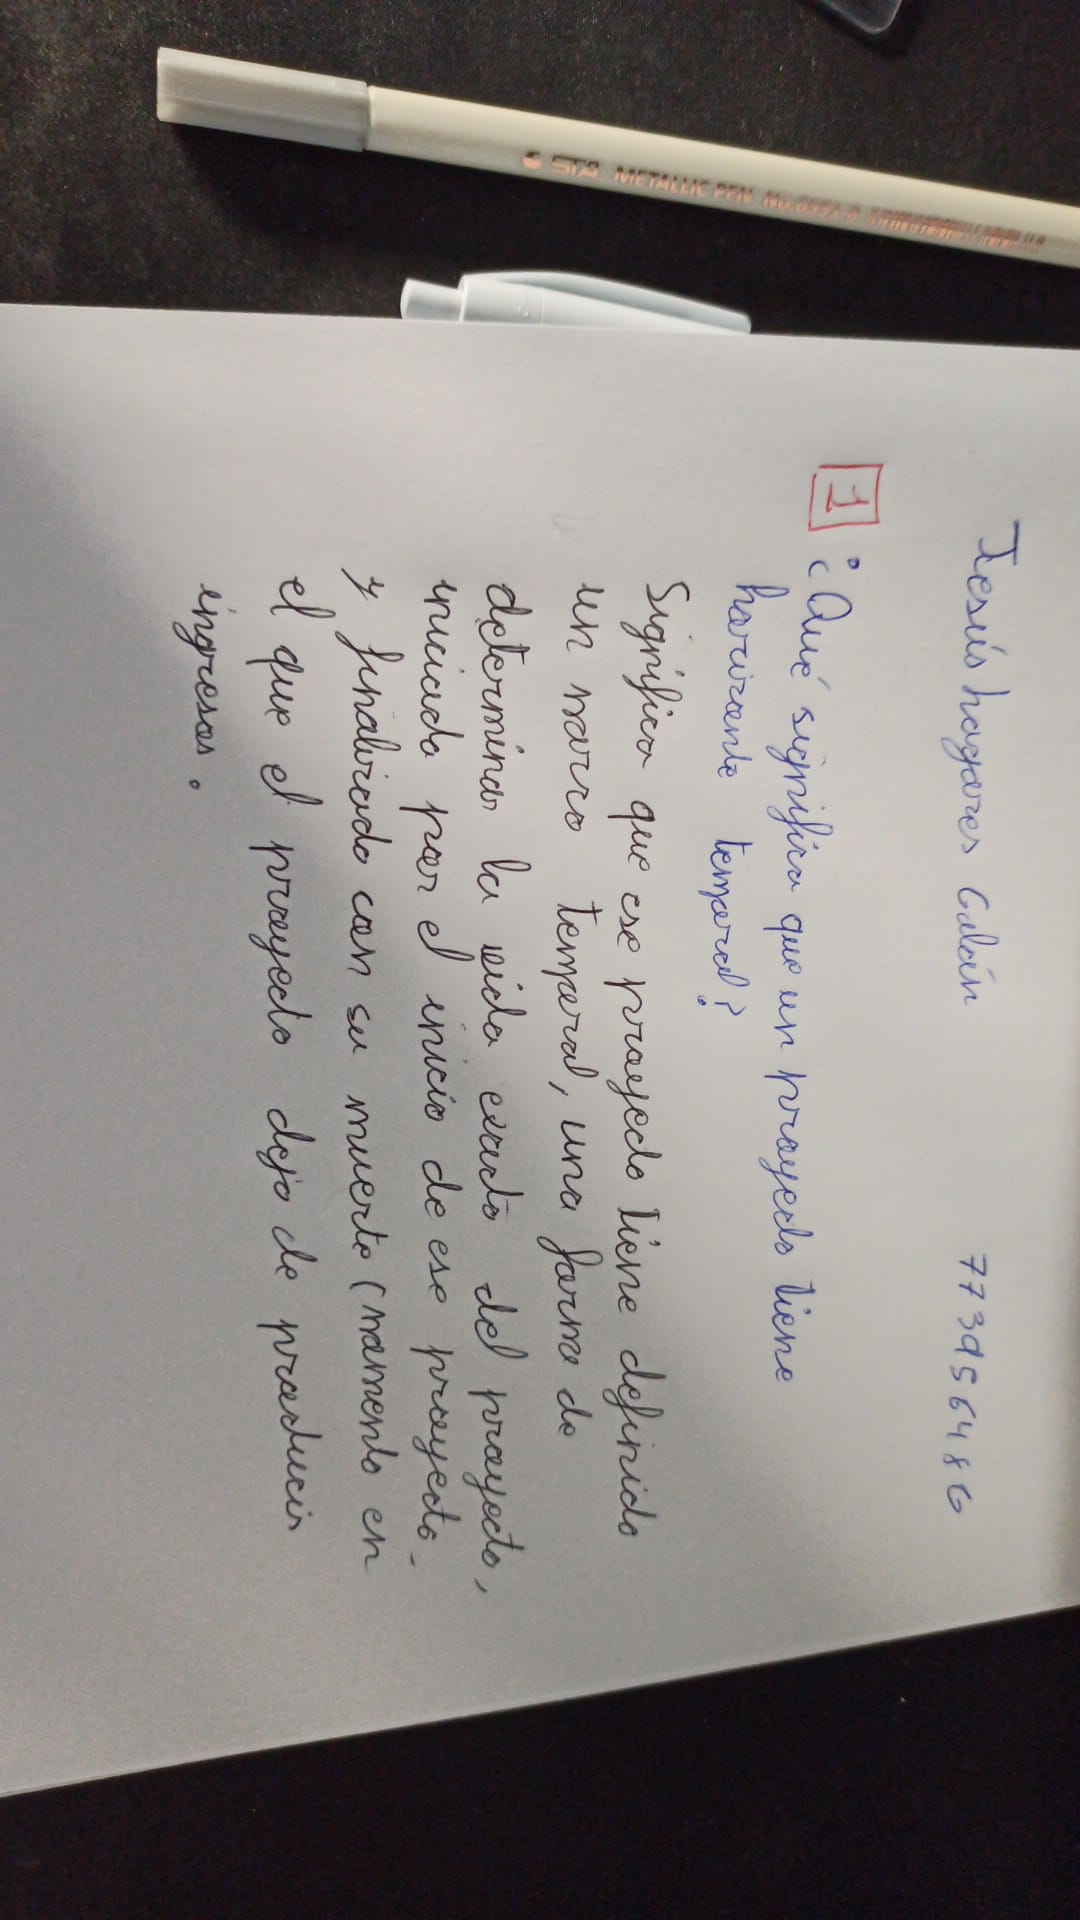 Jesús hagares Galán 773956486
1 ¿Qué significa que un proyecto tiene
horizonte temporal?
Significa que ese proyecto tiene definido
un marco temporal, una forma de
determinar la vida exacta del proyecto,
iniciada por el inicio de ese proyecto
y finalizado con su muerte (momento en
el que el proyecto deja de producir
ingresos.
STA METALLIC PEN